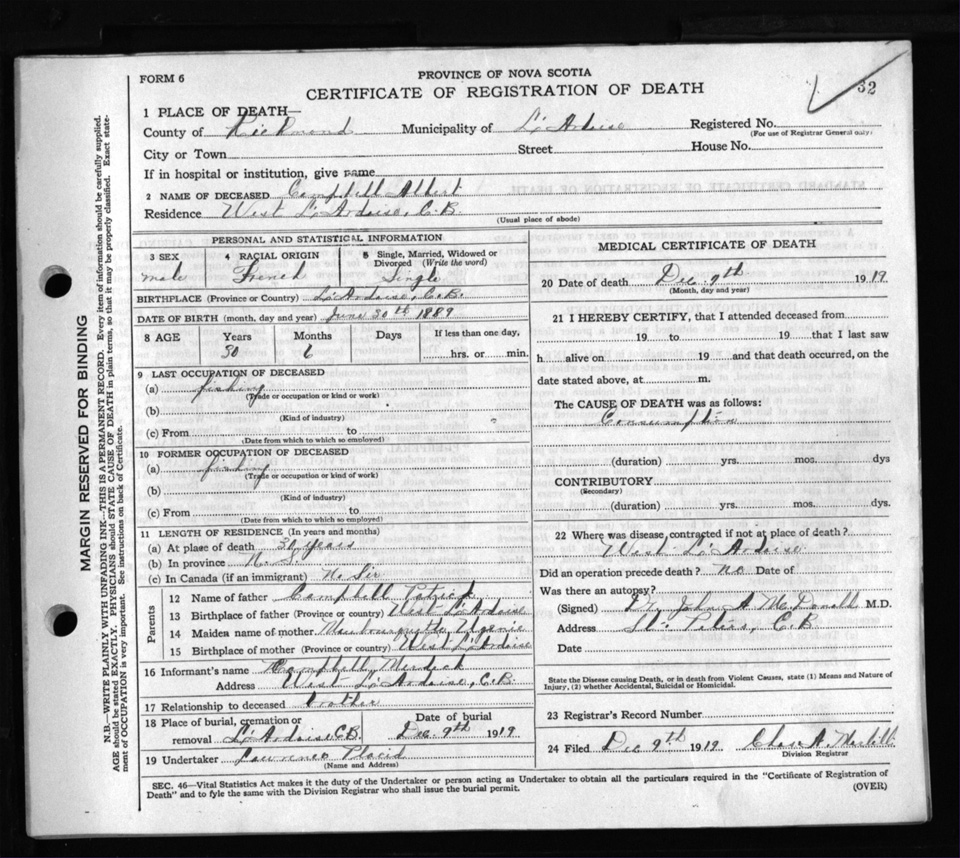 FORM 6
PROVINCE OF NOVA SCOTIA
CERTIFICATE OF REGISTRATION OF DEATH
32
1 PLACE OF DEATH—
County of Richmond Municipality of L'Ardoise Registered No.
(For use of Registrar General only)
City or Town Street House No.
If in hospital or institution, give name
2 NAME OF DECEASED Campbell Albert
Residence West L'Ardoise, C.B.
(Usual place of abode)
PERSONAL AND STATISTICAL INFORMATION
3 SEX 4 RACIAL ORIGIN 5 Single, Married, Widowed or Divorced (Write the word)
male French Single
BIRTHPLACE (Province or Country) L'Ardoise, C.B.
DATE OF BIRTH (month, day and year) June 30th 1889
8 AGE Years Months Days If less than one day,
30 6 hrs. or min.
9 LAST OCCUPATION OF DECEASED
(a) fishing
(Trade or occupation or kind or work)
(b)
(Kind of industry)
(c) From to
(Date from which to which so employed)
10 FORMER OCCUPATION OF DECEASED
(a) fishing
(Trade or occupation or kind of work)
(b)
(Kind of industry)
(c) From to
(Date from which to which so employed)
11 LENGTH OF RESIDENCE (In years and months)
(a) At place of death 30 years
(b) In province N.S.
(c) In Canada (if an immigrant) No Sir
Parents
12 Name of father Campbell Patrick
13 Birthplace of father (Province or country) West L'Ardoise
14 Maiden name of mother
15 Birthplace of mother (Province or country) West L'Ardoise
16 Informant's name Campbell
Address West L'Ardoise, C.B.
17 Relationship to deceased
18 Place of burial, cremation or removal L'Ardoise C.B. Date of burial Dec. 9th 1919
19 Undertaker Lawrence Placid
(Name and Address)
MEDICAL CERTIFICATE OF DEATH
20 Date of death Dec 9th 1919
(Month, day and year)
21 I HEREBY CERTIFY, that I attended deceased from
19 to 19 that I last saw
h alive on 19 and that death occurred, on the
date stated above, at m.
The CAUSE OF DEATH was as follows:
Consumption
(duration) yrs. mos. dys
CONTRIBUTORY
(Secondary)
(duration) yrs. mos. dys.
22 Where was disease contracted if not at place of death?
West L'Ardoise
Did an operation precede death? no Date of
Was there an autopsy?
(Signed) John A McDonall M.D.
Address St. Peters, C.B
Date
State the Disease causing Death, or in death from Violent Causes, state (1) Means and Nature of
Injury, (2) whether Accidental, Suicidal or Homicidal.
23 Registrar's Record Number
24 Filed Dec 9th 1919 Chas. A.
Division Registrar
SEC. 46—Vital Statistics Act makes it the duty of the Undertaker or person acting as Undertaker to obtain all the particulars required in the "Certificate of Registration of
Death" and to fyle the same with the Division Registrar who shall issue the burial permit.
(OVER)
MARGIN RESERVED FOR BINDING
N.B.—WRITE PLAINLY WITH UNFADING INK—THIS IS A PERMANENT RECORD. Every item of information should be carefully supplied.
AGE should be stated EXACTLY. PHYSICIANS should STATE CAUSE OF DEATH in plain terms, so that it may be properly classified. Exact state-
ment of OCCUPATION is very important. See instructions on back of Certificate.